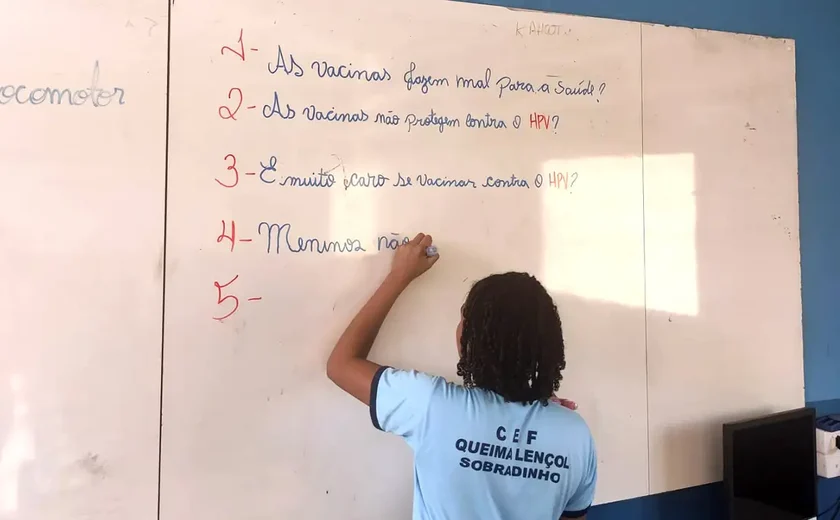 KAHOOT
ocomotor
1- As vacinas fazem mal para a saúde?
2- As vacinas não protegem contra o HPV?
3- É muito caro se vacinar contra o HPV?
4- Meninos não
5-
CEF
QUEIMA LENÇOL
SOBRADINHO